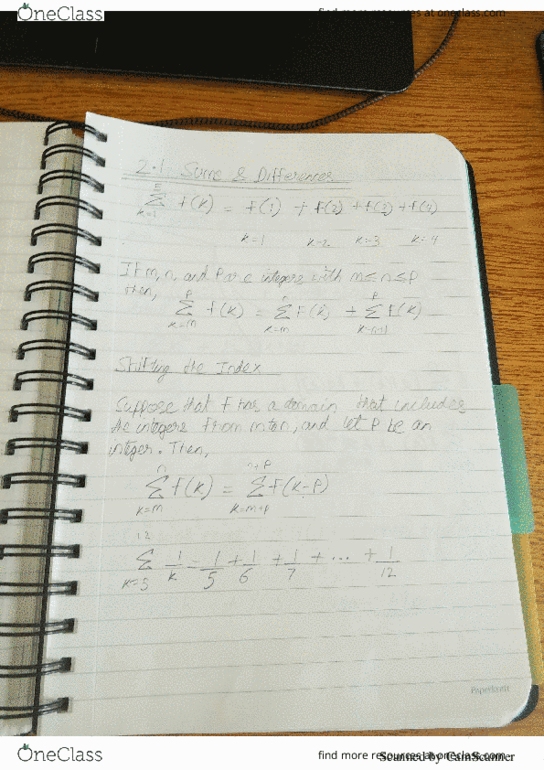 OneClass
find more resources at oneclass.com
2.1 Sums & Differences
Σ f(k) = f(1) + f(2) + f(3) + f(4)
k=1
k=1 k=2 k=3 k=4
If m, n, and P are integers with m≤n≤p
then,
p n p
Σ f(k) = Σ f(k) + Σ f(k)
k=m k=m k=n+1
Shifting the Index
Suppose that f has a domain that includes
the integers from m to n, and let P be an
integer. Then,
n n+p
Σ f(k) = Σ f(k-p)
k=m k=m+p
12
Σ 1/k = 1/5 + 1/6 + 1/7 + ... + 1/12
k=5
OneClass
find more resources at oneclass.com
Scanned by CamScanner